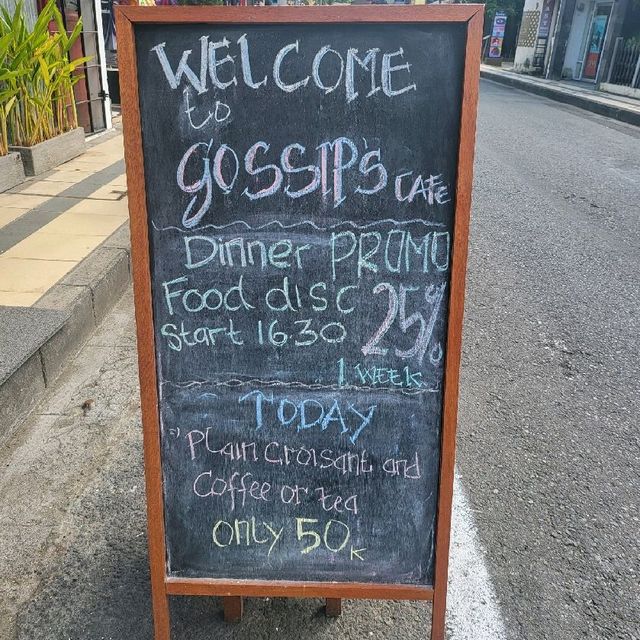 WELCOME
to
gossip's CAFE
Dinner PROMO
Food disc 25%
Start 16.30
1 WEEK
TODAY
Plain croisant and
Coffee or tea
only 50K